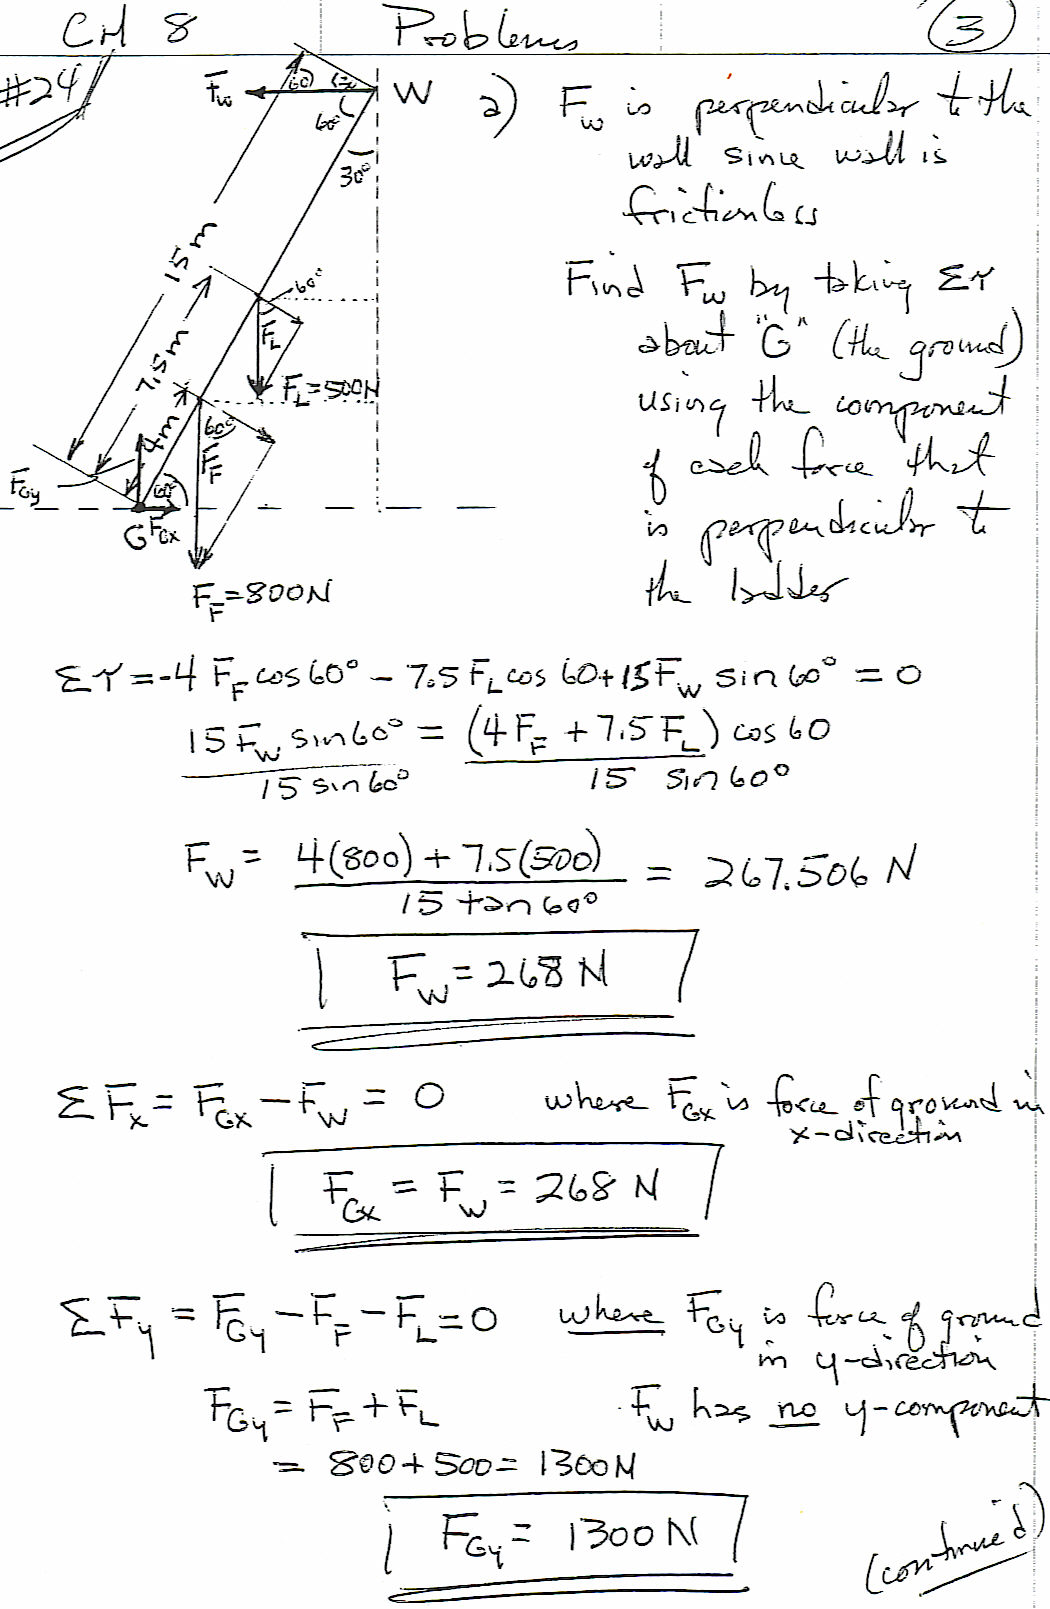 CH 8 Problems 3
#24
F_W W
60° 30°
60°
30°
15 m
60°
7.5 m
F_L
F_L = 500N
4m
60°
F_F
F_Gy
60°
G F_Gx
F_F = 800N
a) F_W is perpendicular to the
wall since wall is
frictionless
Find F_W by taking Στ
about "G" (the ground)
using the component
of each force that
is perpendicular to
the ladder
Στ = -4 F_F cos 60° - 7.5 F_L cos 60 + 15 F_W sin 60° = 0
15 F_W sin 60° = (4 F_F + 7.5 F_L) cos 60
15 sin 60° 15 sin 60°
F_W = 4(800) + 7.5(500) = 267.506 N
15 tan 60°
F_W = 268 N
ΣF_x = F_Gx - F_W = 0 where F_Gx is force of ground in
x-direction
F_Gx = F_W = 268 N
ΣF_y = F_Gy - F_F - F_L = 0 where F_Gy is force of ground
in y-direction
F_Gy = F_F + F_L F_W has no y-component
= 800 + 500 = 1300 N
F_Gy = 1300 N
(continued)